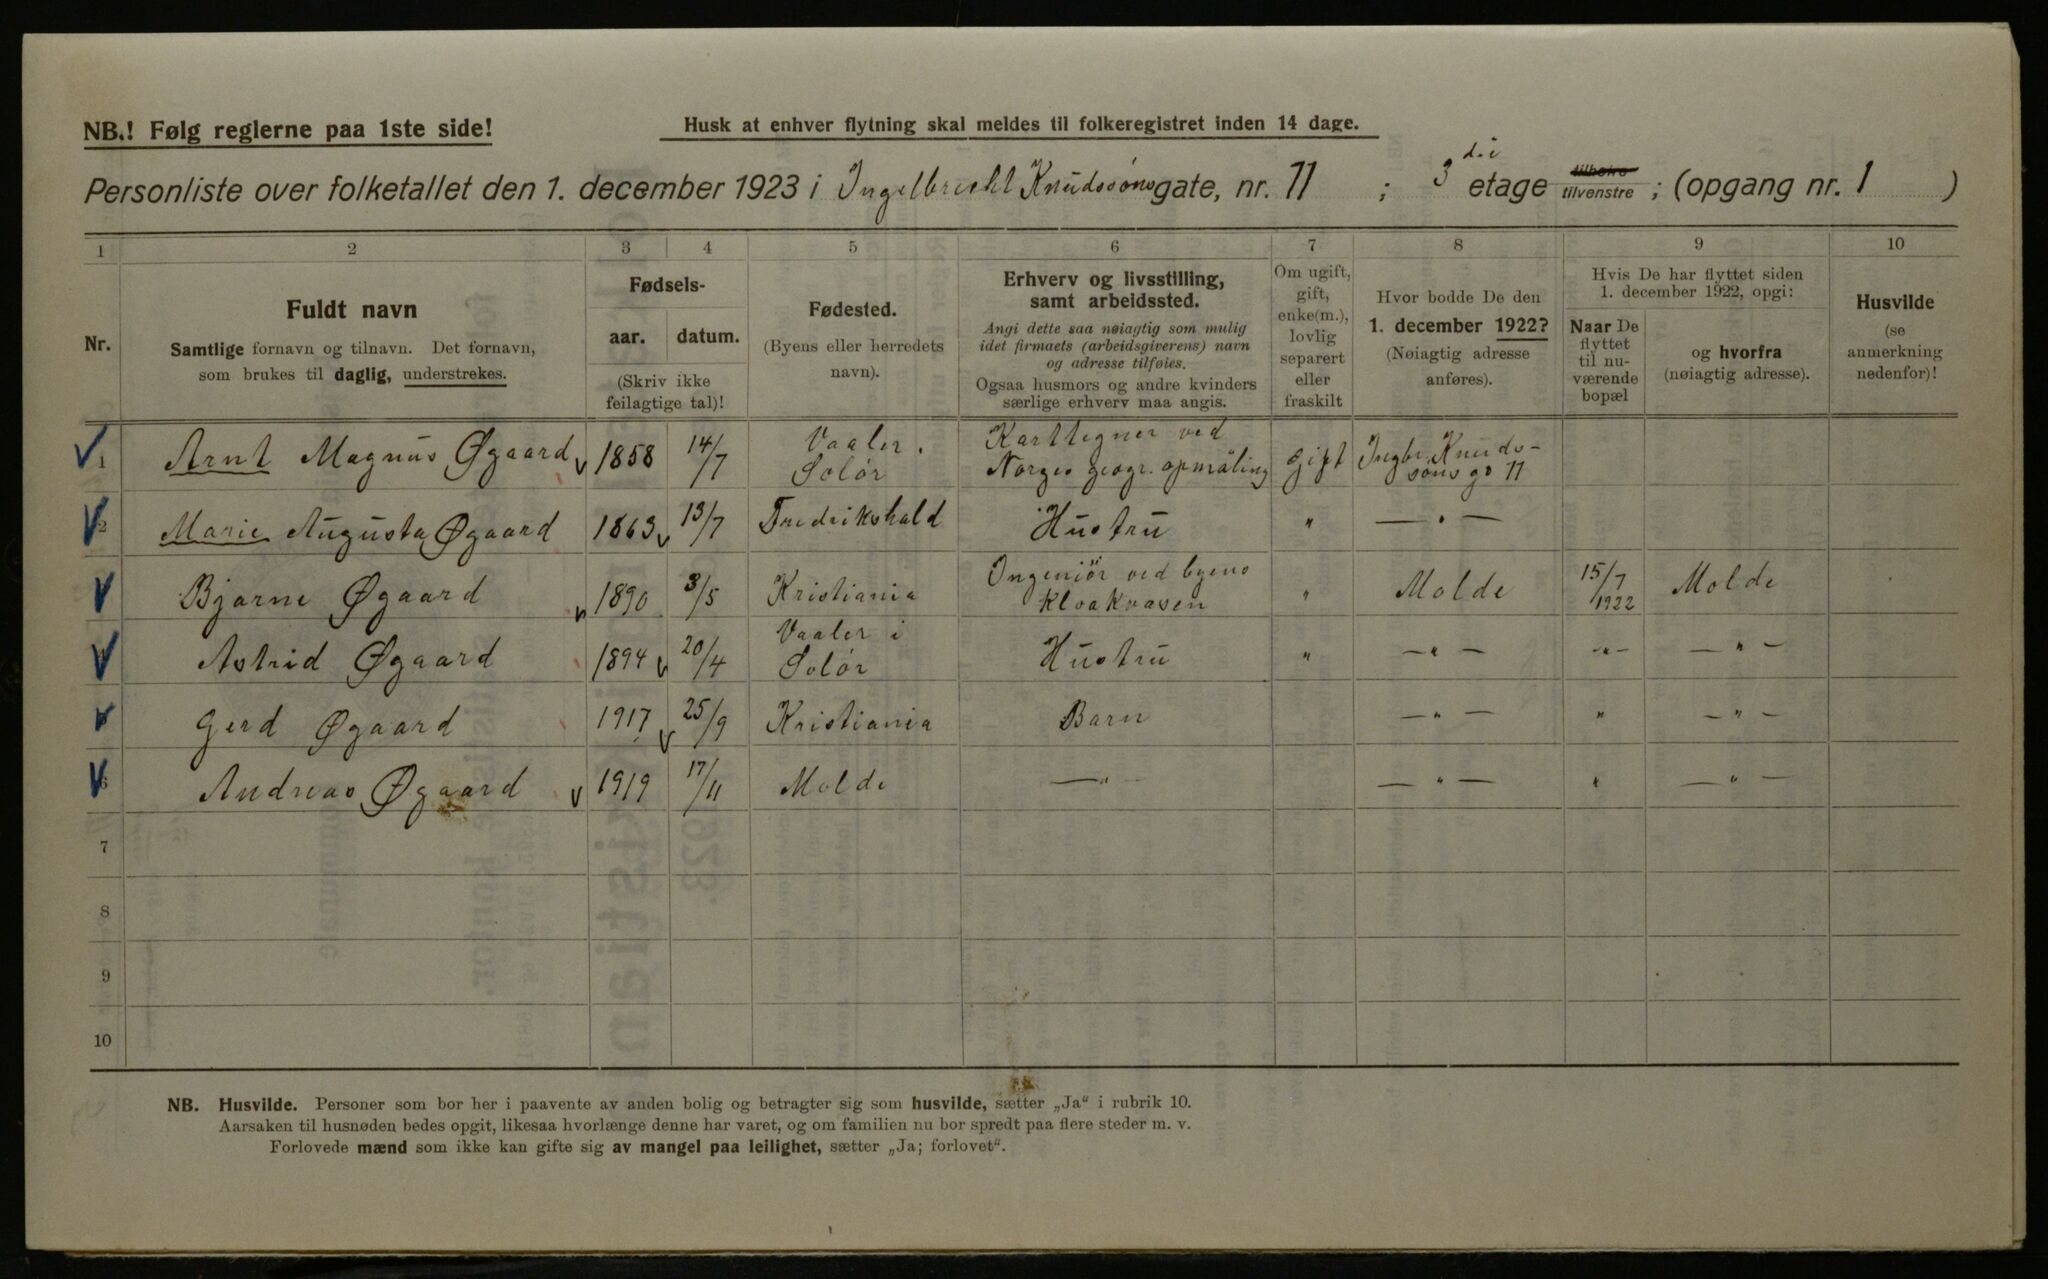 NB.! Følg reglerne paa 1ste side!
Husk at enhver flytning skal meldes til folkeregistret inden 14 dage.
Personliste over folketallet den 1. december 1923 i Ingelbrecht Knudssöns gate, nr. 11 ; 3 die etage tilhøire tilvenstre ; (opgang nr. 1 )
1 2 3 4 5 6 7 8 9 10
Nr.
Fuldt navn
Samtlige fornavn og tilnavn. Det fornavn,
som brukes til daglig, understrekes.
Fødsels-
aar. datum.
(Skriv ikke
feilagtige tal)!
Fødested.
(Byens eller herredets
navn).
Erhverv og livsstilling,
samt arbeidssted.
Angi dette saa nøiagtig som mulig
idet firmaets (arbeidsgiverens) navn
og adresse tilføies.
Ogsaa husmors og andre kvinders
særlige erhverv maa angis.
Om ugift,
gift,
enke(m.),
lovlig
separert
eller
fraskilt
Hvor bodde De den
1. december 1922?
(Nøiagtig adresse
anføres).
Hvis De har flyttet siden
1. december 1922, opgi:
Naar De
flyttet
til nu-
værende
bopæl
og hvorfra
(nøiagtig adresse).
Husvilde
(se
anmerkning
nedenfor)!
1 Arnt Magnus Øgaard 1858 14/7 Vaaler. Solör Karttegner ved Norges geogr. opmåling gift Ingbr. Knuds-söns gt 11
2 Marie Augusta Øgaard 1863 13/7 Fredrikshald Hustru " — " —
Bjarne Øgaard 1890 3/5 Kristiania Ingeniör ved byens kloakvæsen " Molde 15/7 1922 Molde
Astrid Øgaard 1894 20/4 Vaaler i Solör Hustru " — " — — " — — " —
Gerd Øgaard 1917 25/9 Kristiania Barn — " — " — " —
6 Andreas Øgaard 1919 17/11 Molde — " — — " — " — " —
7
8
9
10
NB. Husvilde. Personer som bor her i paavente av anden bolig og betragter sig som husvilde, sætter „Ja“ i rubrik 10.
Aarsaken til husnøden bedes opgit, likesaa hvorlænge denne har varet, og om familien nu bor spredt paa flere steder m. v.
Forlovede mænd som ikke kan gifte sig av mangel paa leilighet, sætter „Ja; forlovet“.